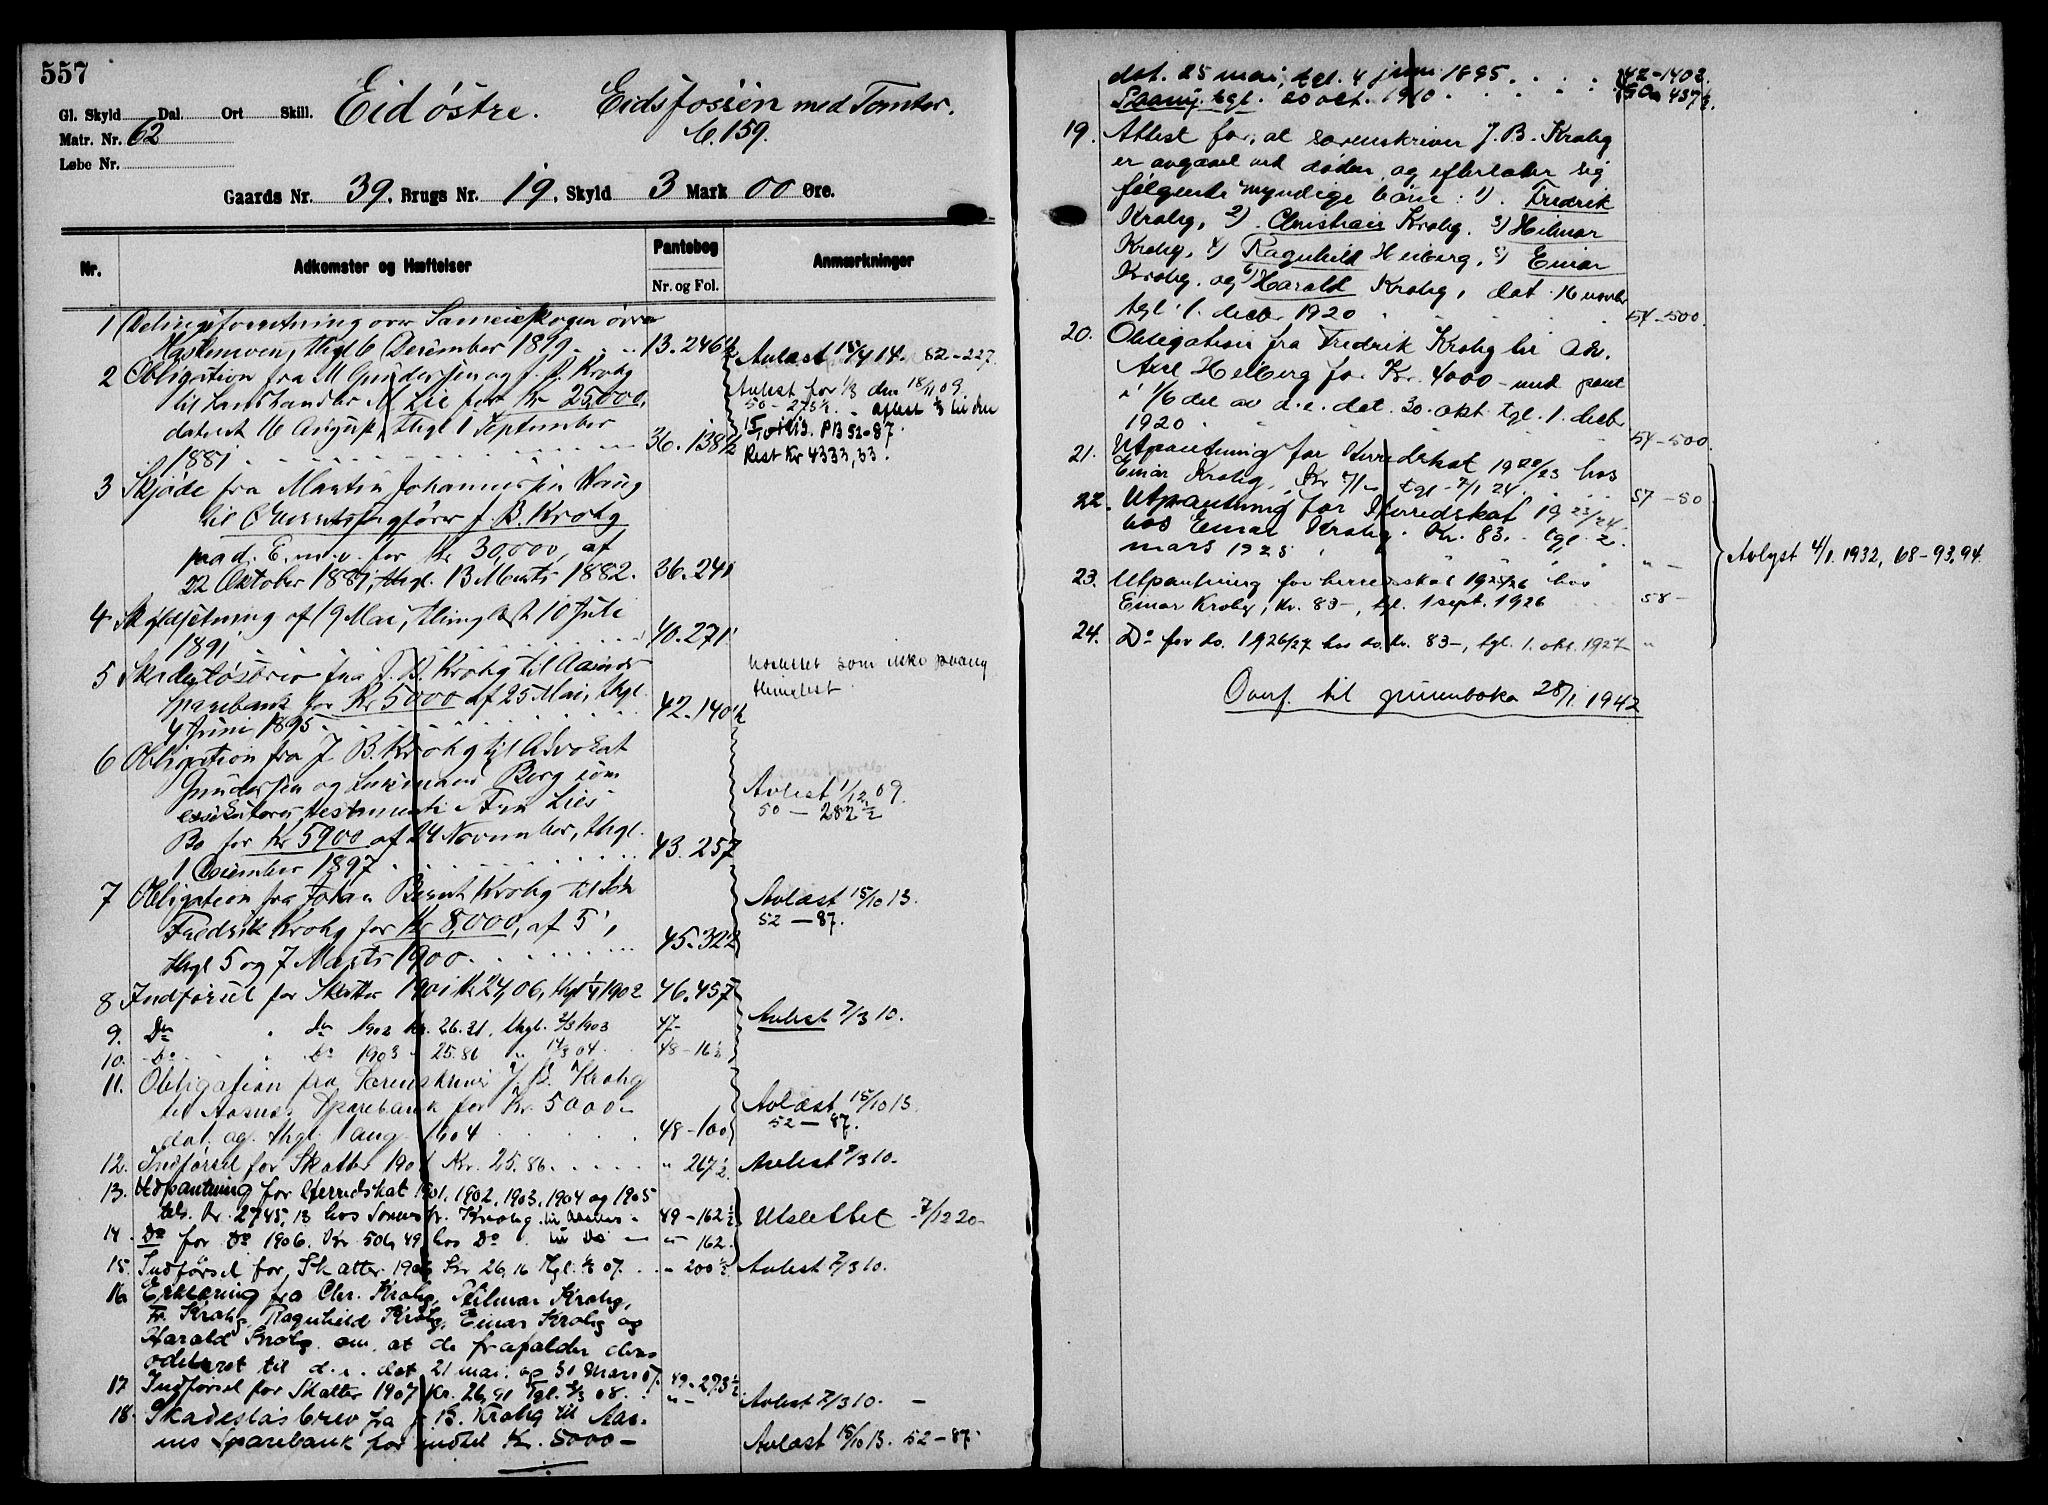 557
Gl. Skyld Dal. Ort Skill.
Eid østre. Eidsfosien med Tomter.
b. 159.
Matr. Nr. 62
Løbe Nr.
Gaards Nr. 39. Brugs Nr. 19. Skyld 3 Mark 00 Øre.
Nr. Adkomster og Hæftelser Pantebog Anmærkninger
Nr. og Fol.
1 Delingsforretning over Sameieskogen øvre
Haslemoen, thgl 6 December 1899 13.246½
Avlæst 15/4 14. 82-227.
2 Obligation fra M Gundersen og J. B. Krohg
til Landhandler M Lie for Kr 25,000,
dateret 16 August, thgl 1 September
1881 36.138½
Avlest for 1/3 den 18/11 09
50-273½. - aflest
PB 52-87.
Rest Kr 4333,33.
3 Skjøde fra Martin Johannesen Haug
til Overretssagfører J. B. Krohg
paa d. E. m. v. for Kr 30,000, af
22 Oktober 1881, thgl. 13 Marts 1882. 36.241
4 Skyldsetning af 19 Mai, thinglæst 10 Juli
1891 40.271
5 Skadesløsbrev fra J. B. Krohg til Aasnes
Sparebank for Kr 5000 af 25 Mai, thgl.
4 Juni 1895 42.140½
Udslettet som ikke paany
thinglest.
6 Obligation fra J. B. Krohg til Advokat
Gundersen og Lensmand Berg som
testamenti i Lies
Bo for Kr 5900 af 24 November, thgl.
1 December 1897 43.257
Avlest 1/12 09.
50-282½
7 Obligation fra Johan Bernt Krohg til Søn
Fredrik Krohg for Kr 8,000, af 5,
thgl 5 og 7 Marts 1900 45.322
Avlæst 15/10 13.
52-87.
8 Indførsel for Skatter 1901 Kr 24,06, thgl 1/4 1902 46.457
9. Do " do 1902 Kr. 26.31, thgl. 2/3 1903 47-
Avlest 7/3 10.
10. Do " do 1903 " 25.86 " 14/3 04 48-16½
11. Obligation fra Sorenskriver J. B. Krohg
til Aasnes Sparebank for Kr. 5000-
dat. og thgl. 1 aug. 1904 48-100
Avlæst 15/10 13.
52-87.
12. Indførsel for Skatter 1904 Kr. 25.86. " 267½ Avlest 7/3 10.
13. Udpantning for Herredskat 1901, 1902, 1903, 1904 og 1905
Kr. 2745,13 hos Sorenskr. Krohg til Aasnes 49-162½
Utslettet 7/12 20-
14. Do for Do 1906. Kr 506,49 hos Do til Do "- 162.
15. Indførsel for Skatter 1906 Kr 26,16 Tgl. 07. "- 200½ Avlest 7/3 10.
16 Erklæring fra Chr. Krohg, Hilmar Krohg,
Fr. Krohg, Ragnhild Krohg, Einar Krohg og
Harald Krohg om, at de frafalder deres
odelsret til d. e. dat 21 mai og 31 Mars 07. 49-273½
17 Indførsel for Skatter 1907 Kr. 26,91 Tgl. 08. "- Avlest 7/3 10. -
18. Skadesløsbrev fra J. B. Krohg til Aas-
nes Sparebank for indtil Kr. 5000- Avlæst 15/10 13. 52-87.
dat. 25 mai, tgl. 4 juni 1895. 42-140½.
Paany tgl. 20 oct. 1910 50-437½.
19. Attest for, at sorenskriver J. B. Krohg
er avgaaet ved døden og efterlater sig
følgende myndige børn: 1). Fredrik
Krohg, 2) Christian Krohg. 3) Hilmar
Krohg, 4) Ragnhild Heiberg, 5) Einar
Krohg, og 6) Harald Krohg, dat 16 novbr
tgl. 1. decbr 1920 54-500.
20. Obligation fra Fredrik Krohg til adv.
Axel Heiberg for Kr. 4000- med pant
i 1/6 del av d. e. dat. 30. okt. tgl. 1. decbr
1920 54-500
21. Utpantning for Herredskat 1922/23 hos
Einar Krohg, Kr 71- tgl. 2/1 24. 57-80
22. Utpantning for Herredskat 1923/24
hos Einar Krohg. Kr. 83. tgl. 2.
mars 1925 "-
23. Utpantning for herredskat 1925/26 hos
Einar Krohg, kr. 83-, tgl. 1 sept. 1926 58-
Avlyst 4/1. 1932, 68-93,94.
24. Do for do. 1926/27 hos do. kr. 83-, tgl. 1. okt. 1927 "
Overf. til grunnboka 28/1 1942